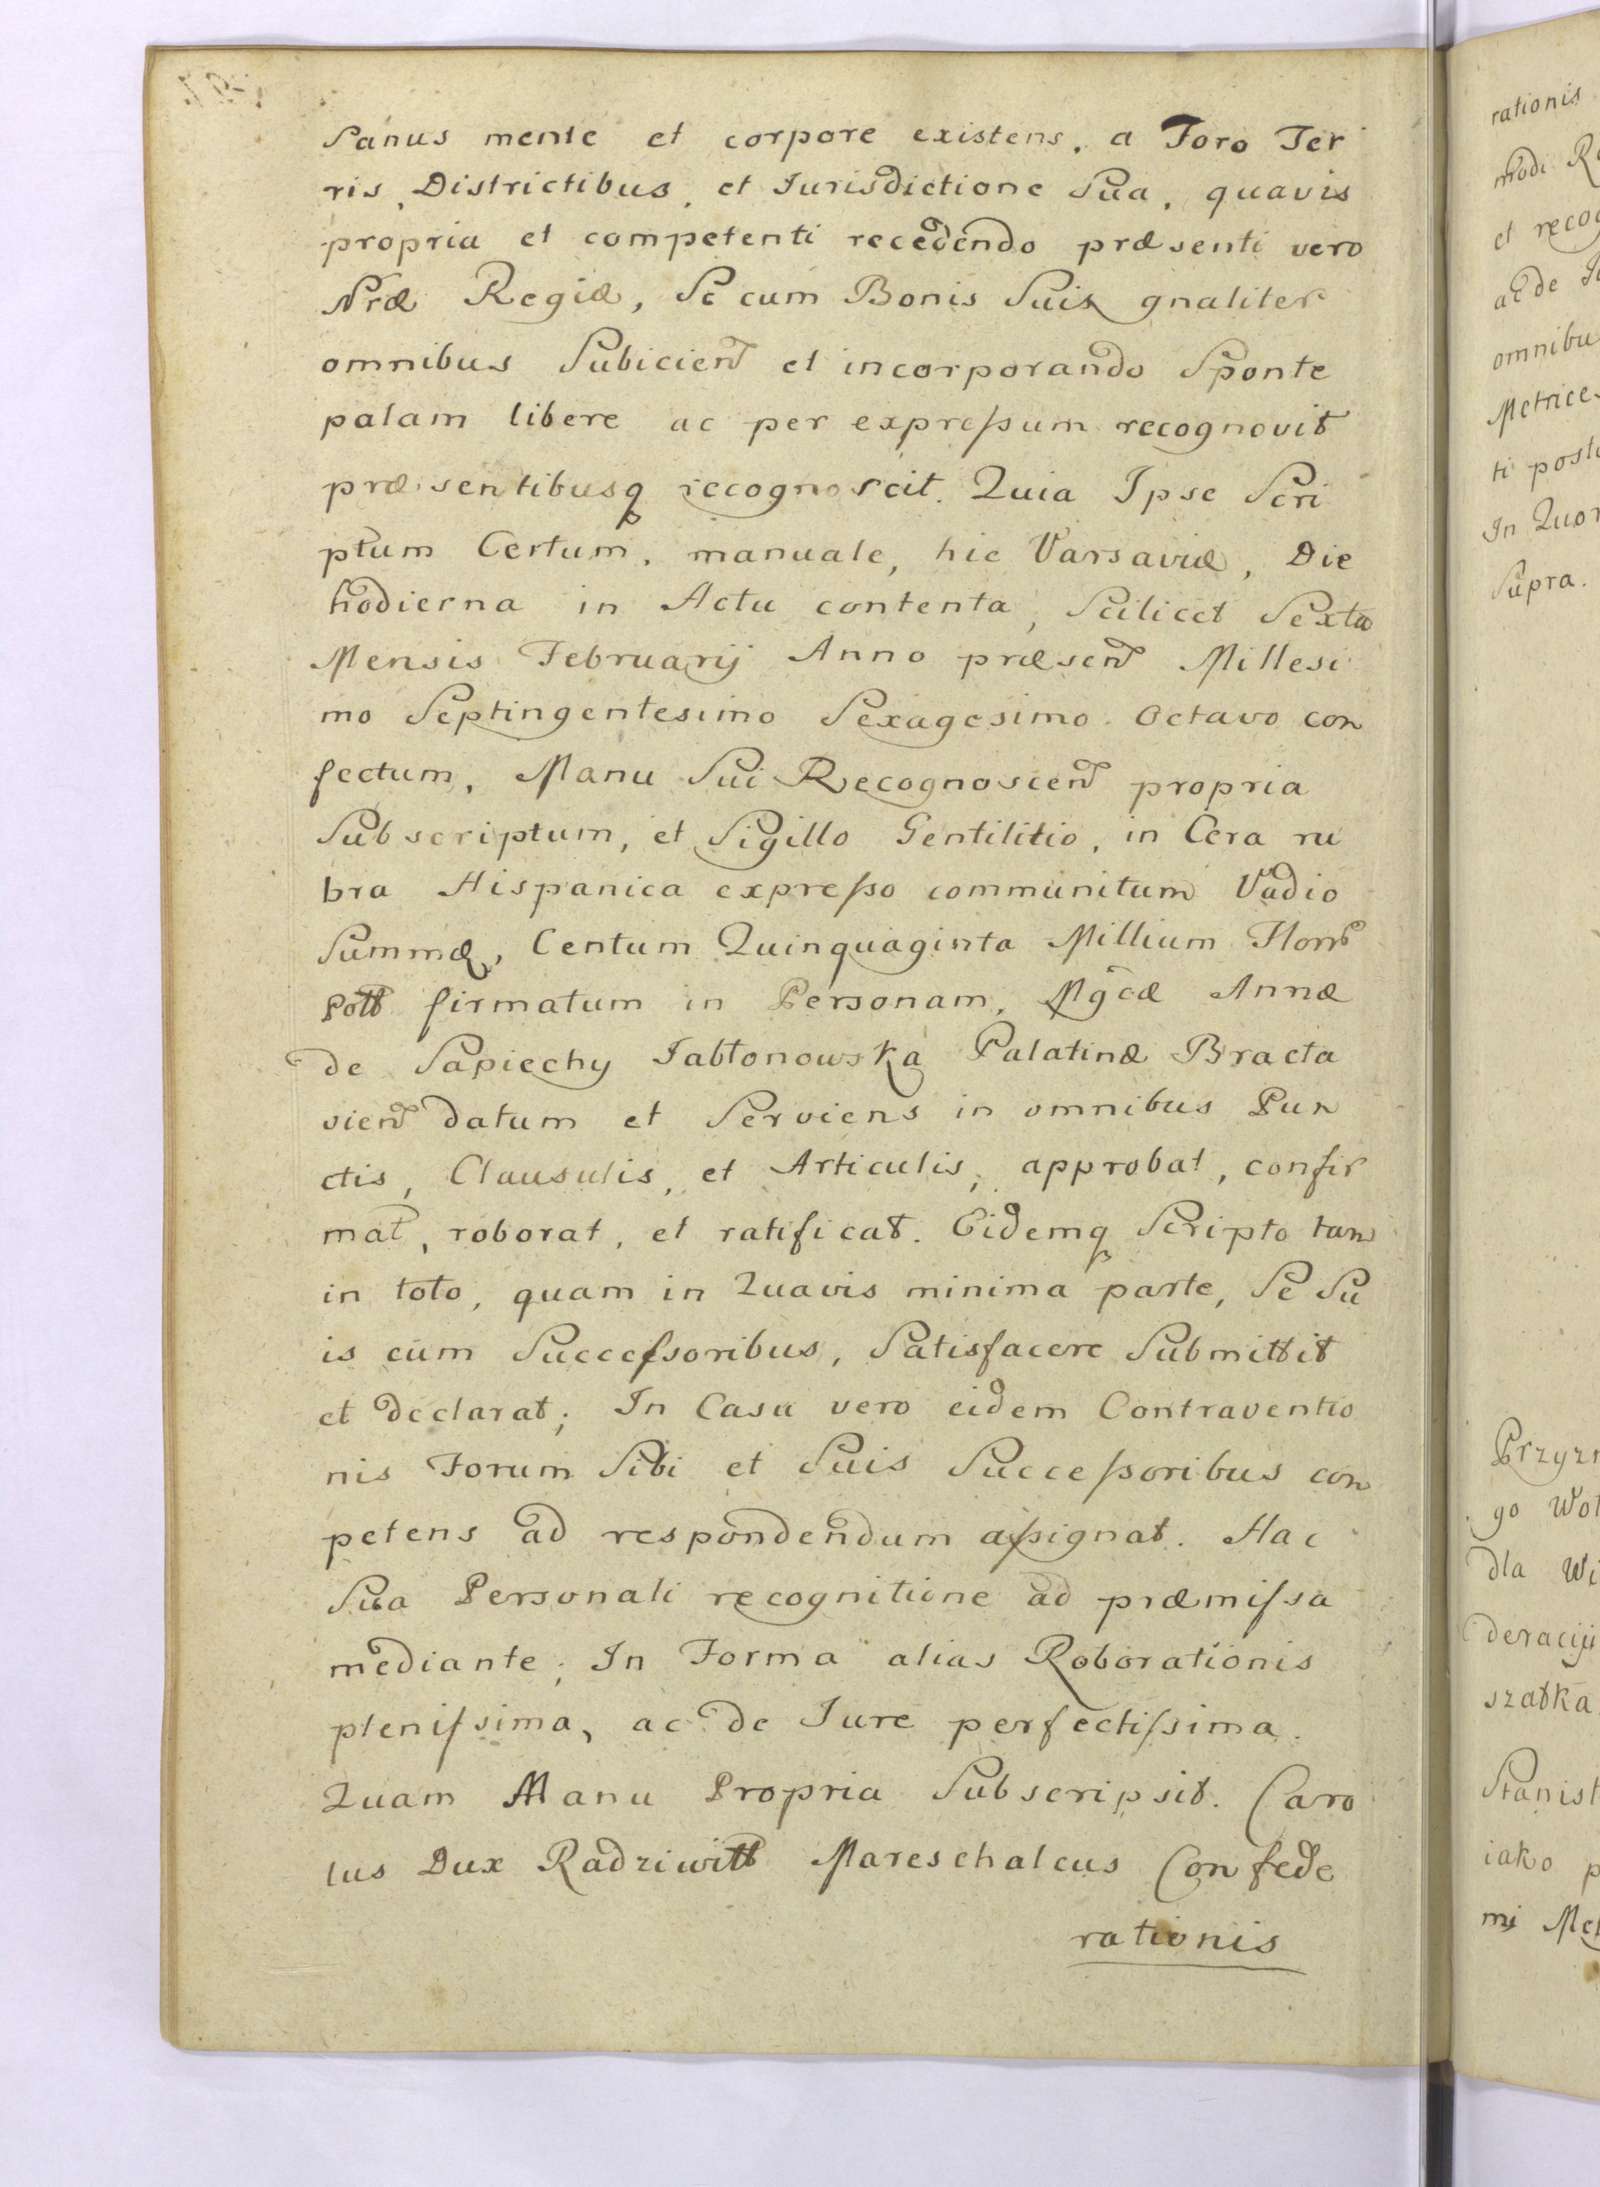 Sanus mente et corpore existens, a Foro Ter
ris, Districtibus, et Jurisdictione Sua, quavis
propria et competenti recedendo præsenti vero
Nræ Regiæ, Se cum Bonis Suis gnaliter
omnibus Subicien et incorporando Sponte
palam libere ac per expressum recognovit
præsentibusq recognoscit. Quia Ipse Scri
ptum Certum, manuale, hic Varsaviæ, Die
hodierna in Actu contenta, Scilicet Sexta
Mensis Februarij Anno præsen Millesi
mo Septingentesimo Sexagesimo Octavo con
fectum, Manu Sui Recognoscen propria
Subscriptum, et Sigillo Gentilitio, in Cera ru
bra Hispanica expresso communitum Vadio
Summæ, Centum Quinquaginta Millium Flor
Poll firmatum in Personam, Mgcæ Annæ
de Sapiechy Jabłonowska Palatinæ Bracla
vien datum et Serviens in omnibus Pun
ctis, Clausulis, et Articulis, approbat, confir
mat, roborat, et ratificat. Eidemq Scripto tam
in toto, quam in Quavis minima parte, Se Su
is cum Successoribus, Satisfacere Submittit
et declarat; In Casu vero eidem Contraventio
nis Forum Sibi et Suis Successoribus com
petens ad respondendum assignat. Hac
Sua Personali recognitione ad præmissa
mediante; In Forma alias Roborationis
plenissima, ac de Jure perfectissima.
Quam Manu Propria Subscripsit. Caro
lus Dux Radziwiłł Mareschalcus Confede
rationis
rationis
modi
et
ac de
omnibu
Metrices
ti
In Quor
Supra.
go
dla
deracyi
szałka
iako